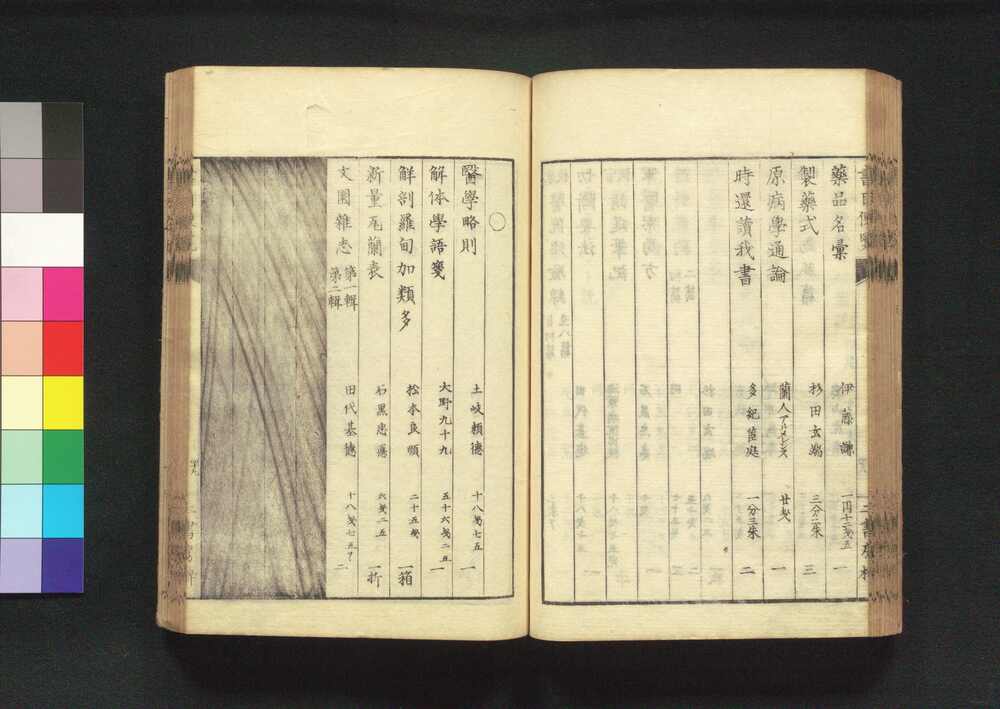 藥品名彙 伊藤謙 一円十二戔五 一
製藥式 杉田玄端 三分二朱 三
原病學通論 蘭人アルメレンス 廿戔 一
時還讀我書 多紀茝庭 一分三朱 二
〇
醫學略則 土岐頼德 十八戔七五 一
解体學語箋 大野九十九 五十六戔二五 一
觧剖羅甸加類多 松本良順 二十五戔 一箱
新量瓦蘭表 石黒忠悳 六戔二五 一折
文園雜志 第一輯 第二輯 田代基德 十八戔七五了 二